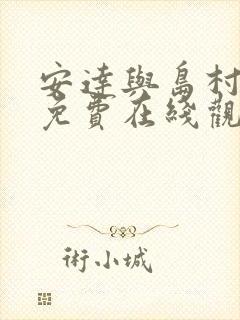 安達與島村
免費在綫觀
術小城